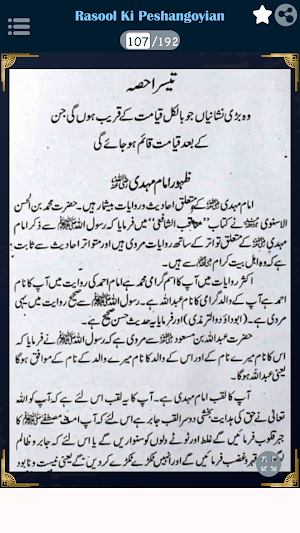 Rasool Ki Peshangoyian
107/192
تیسرا حصہ
وہ بڑی نشانیاں جو بالکل قیامت کے قریب ہوں گی جن
کے بعد قیامت قائم ہو جائے گی
ظہور امام مہدی
امام مہدی کے متعلق احادیث و روایات بیشمار ہیں۔ حضرت محمد بن الحسن
الاسنوی نے کتاب "مناقب الشافعی" میں فرمایا کہ رسول اللہ ﷺ سے ذکر امام
مہدی کے متعلق تواتر کے ساتھ روایات مروی ہیں اور متواتر احادیث سے ثابت
ہے کہ وہ اہل بیت کرام سے ہیں۔
اکثر روایات میں آپ کا اسم گرامی محمد ہے امام احمد کی روایت میں آپ کا نام
احمد ہے آپ کے والد گرامی کا نام عبداللہ ہے۔ رسول اللہ ﷺ سے صحیح روایت میں یہی
مروی ہے۔ (ابوداؤد والترمذی) اور فرمایا یہ حدیث حسن صحیح ہے۔
حضرت عبداللہ بن مسعود سے مروی ہے کہ رسول اللہ ﷺ نے فرمایا کہ
اس کا نام میرے نام کے اور اس کے والد کا نام میرے والد کے نام کے موافق ہوگا
یعنی عبداللہ ہوگا۔
آپ کا لقب امام مہدی ہے۔ آپ کا یہ لقب اس لئے ہے کہ آپ کو اللہ
تعالیٰ نے حق کی ہدایت بخشی دوسرا القب جابر ہے اس لئے کہ آپ امت مصطفےٰ ﷺ کا
جبر قلوب فرمائیں گے غلط اور ٹوٹے دلوں کو سنواریں گے یا اس لئے کہ جابر و ظالم
قہر و غضب فرمائیں گے اور انہیں ٹکڑے ٹکڑے کر دیں گے یعنی نیست و نابود